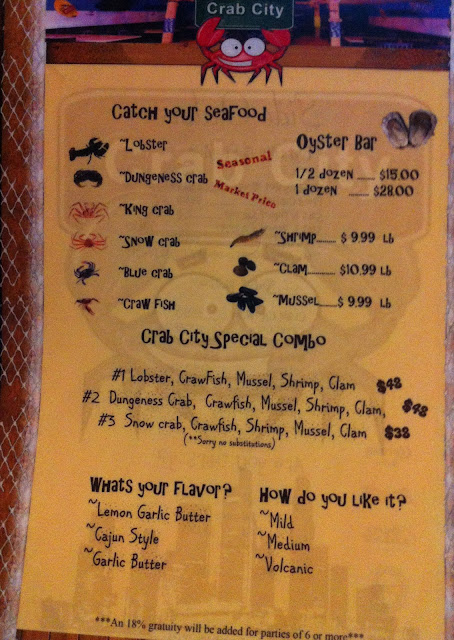 Crab City
Catch your Seafood
~Lobster
~Dungeness crab
~King crab
~Snow crab
~Blue crab
~Craw fish
Seasonal
Market Price
Oyster Bar
1/2 dozen ...... $15.00
1 dozen ...... $28.00
~Shrimp......... $ 9.99 Lb
~Clam............. $10.99 Lb
~Mussel........ $ 9.99 Lb
Crab City Special Combo
#1 Lobster, CrawFish, Mussel, Shrimp, Clam $48
#2 Dungeness Crab, Crawfish, Mussel, Shrimp, Clam, $48
#3 Snow crab, Crawfish, Shrimp, Mussel, Clam $38
(**Sorry no substitutions)
Whats your Flavor?
~Lemon Garlic Butter
~Cajun Style
~Garlic Butter
How do you like it?
~Mild
~Medium
~Volcanic
***An 18% gratuity will be added for parties of 6 or more***